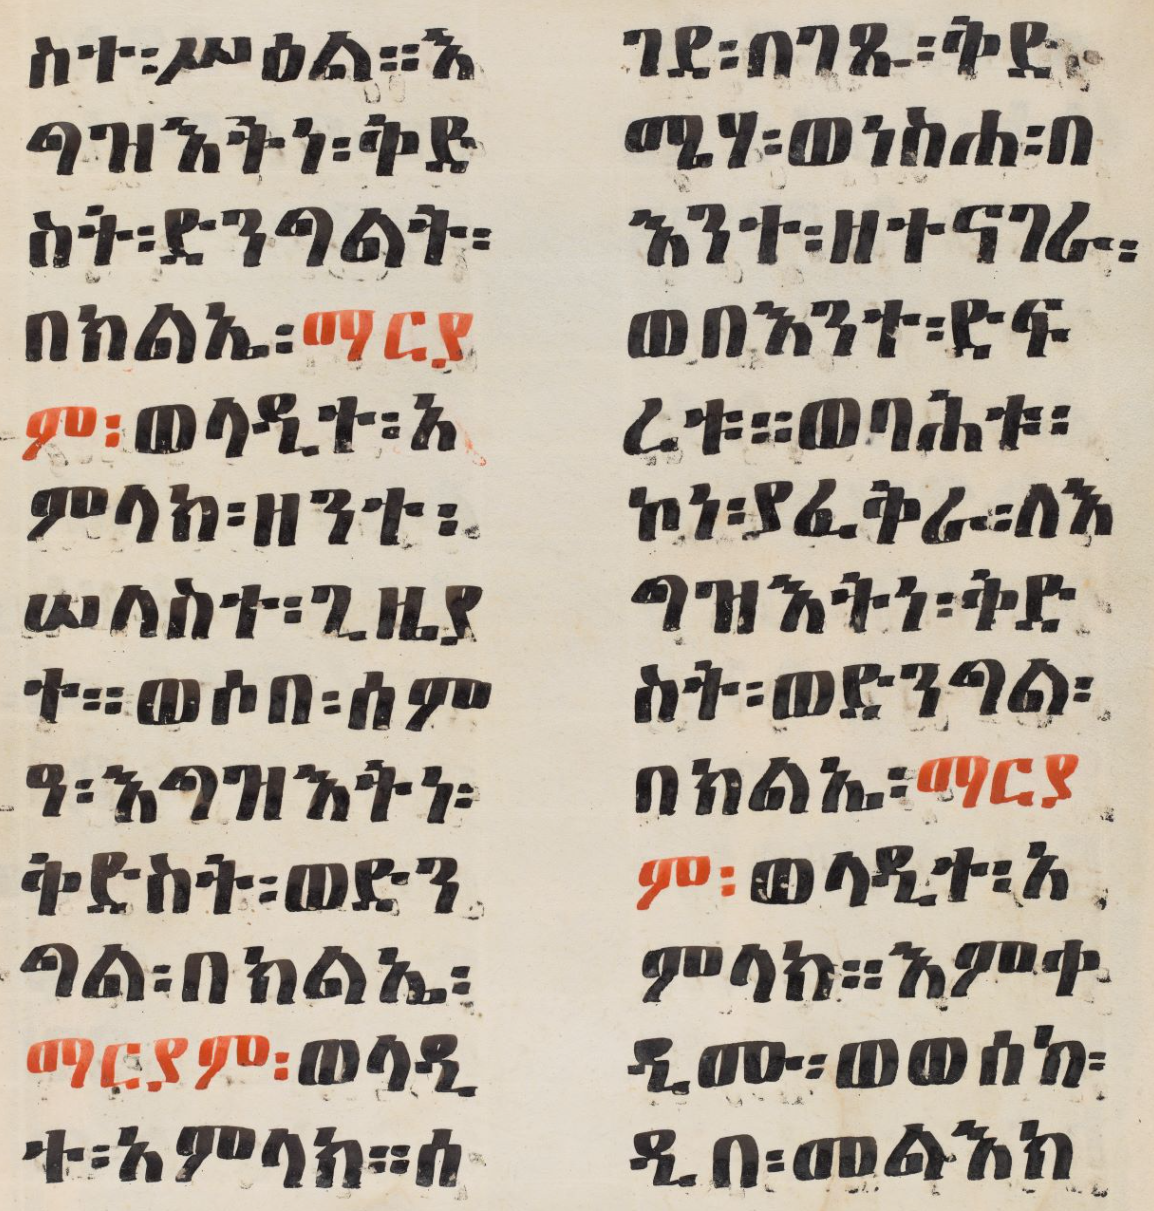 ስተ፡ሥዕል፡፡እ
ግዝእትነ፡ቅድ
ስት፡ድንግልት፡
በክልኤ፡ማርያ
ም፡ወላዲተ፡አ
ምላክ፡ዘንተ፡
ሠለስተ፡ጊዜያ
ተ፡፡ወሶበ፡ሰም
ዓ፡እግዝእትነ፡
ቅድስት፡ወድን
ግል፡በክልኤ፡
ማርያም፡ወላዲ
ተ፡አምላክ፡፡ሰ
ገደ፡በገጹ፡ቅድ
ሜሃ፡ወነስሐ፡በ
እንተ፡ዘተናገራ፡
ወበእንተ፡ድፍ
ረቱ፡፡ወባሕቱ፡፡
ኮነ፡ያፈቅራ፡ለእ
ግዝእትነ፡ቅድ
ስት፡ወድንግል፡
በክልኤ፡ማርያ
ም፡ወላዲተ፡አ
ምላክ፡፡እምቀ
ዲሙ፡ወወሰከ፡
ዲበ፡መልእክ